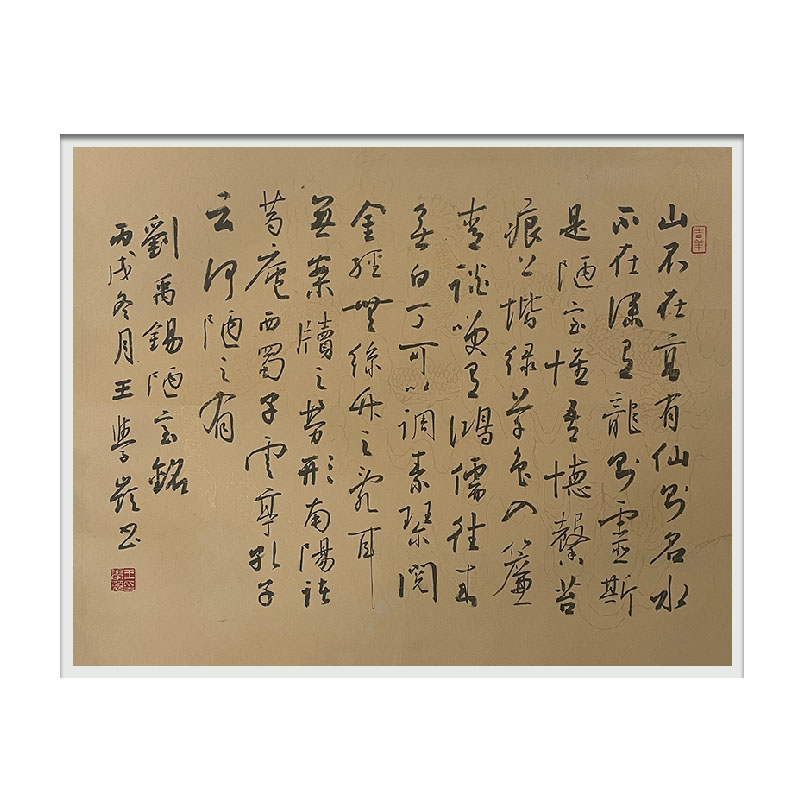 山不在高有仙則名水
不在深有龍則靈斯
是陋室惟吾德馨苔
痕上階綠草色入簾
青談笑有鴻儒往來
無白丁可以調素琴閱
金經無絲竹之亂耳
無案牘之勞形南陽諸
葛廬西蜀子雲亭孔子
云何陋之有
劉禹錫陋室銘
丙戌冬月王學嶺書